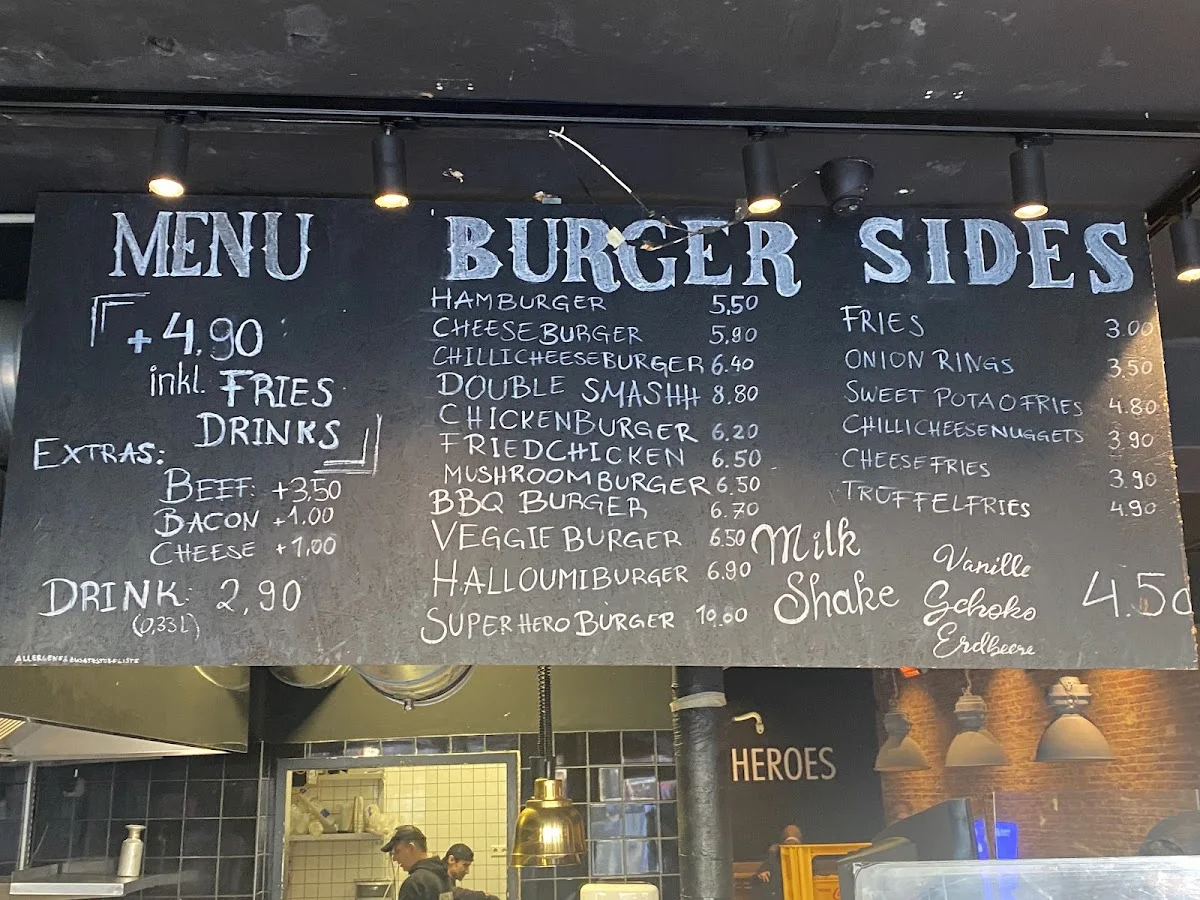 MENU
+4.90
inkl. FRIES
DRINKS
EXTRAS:
BEEF: +3,50
BACON +1.00
CHEESE +1,00
DRINK: 2,90
(0,33L)
BURGER
HAMBURGER 5,50
CHEESEBURGER 5,90
CHILLICHEESEBURGER 6.40
DOUBLE SMASHH 8.80
CHICKENBURGER 6.20
FRIEDCHICKEN 6.50
MUSHROOMBURGER 6,50
BBQ BURGER 6.70
VEGGIE BURGER 6.50
HALLOUMIBURGER 6.90
SUPERHERO BURGER 10.00
SIDES
FRIES 3.00
ONION RINGS 3,50
SWEET POTAOFRIES 4.80
CHILLICHEESENUGGETS 3.90
CHEESEFRIES 3.90
TRÜFFELFRIES 4.90
Milk
Shake
Vanille
Schoko
Erdbeere
4.50
HEROES